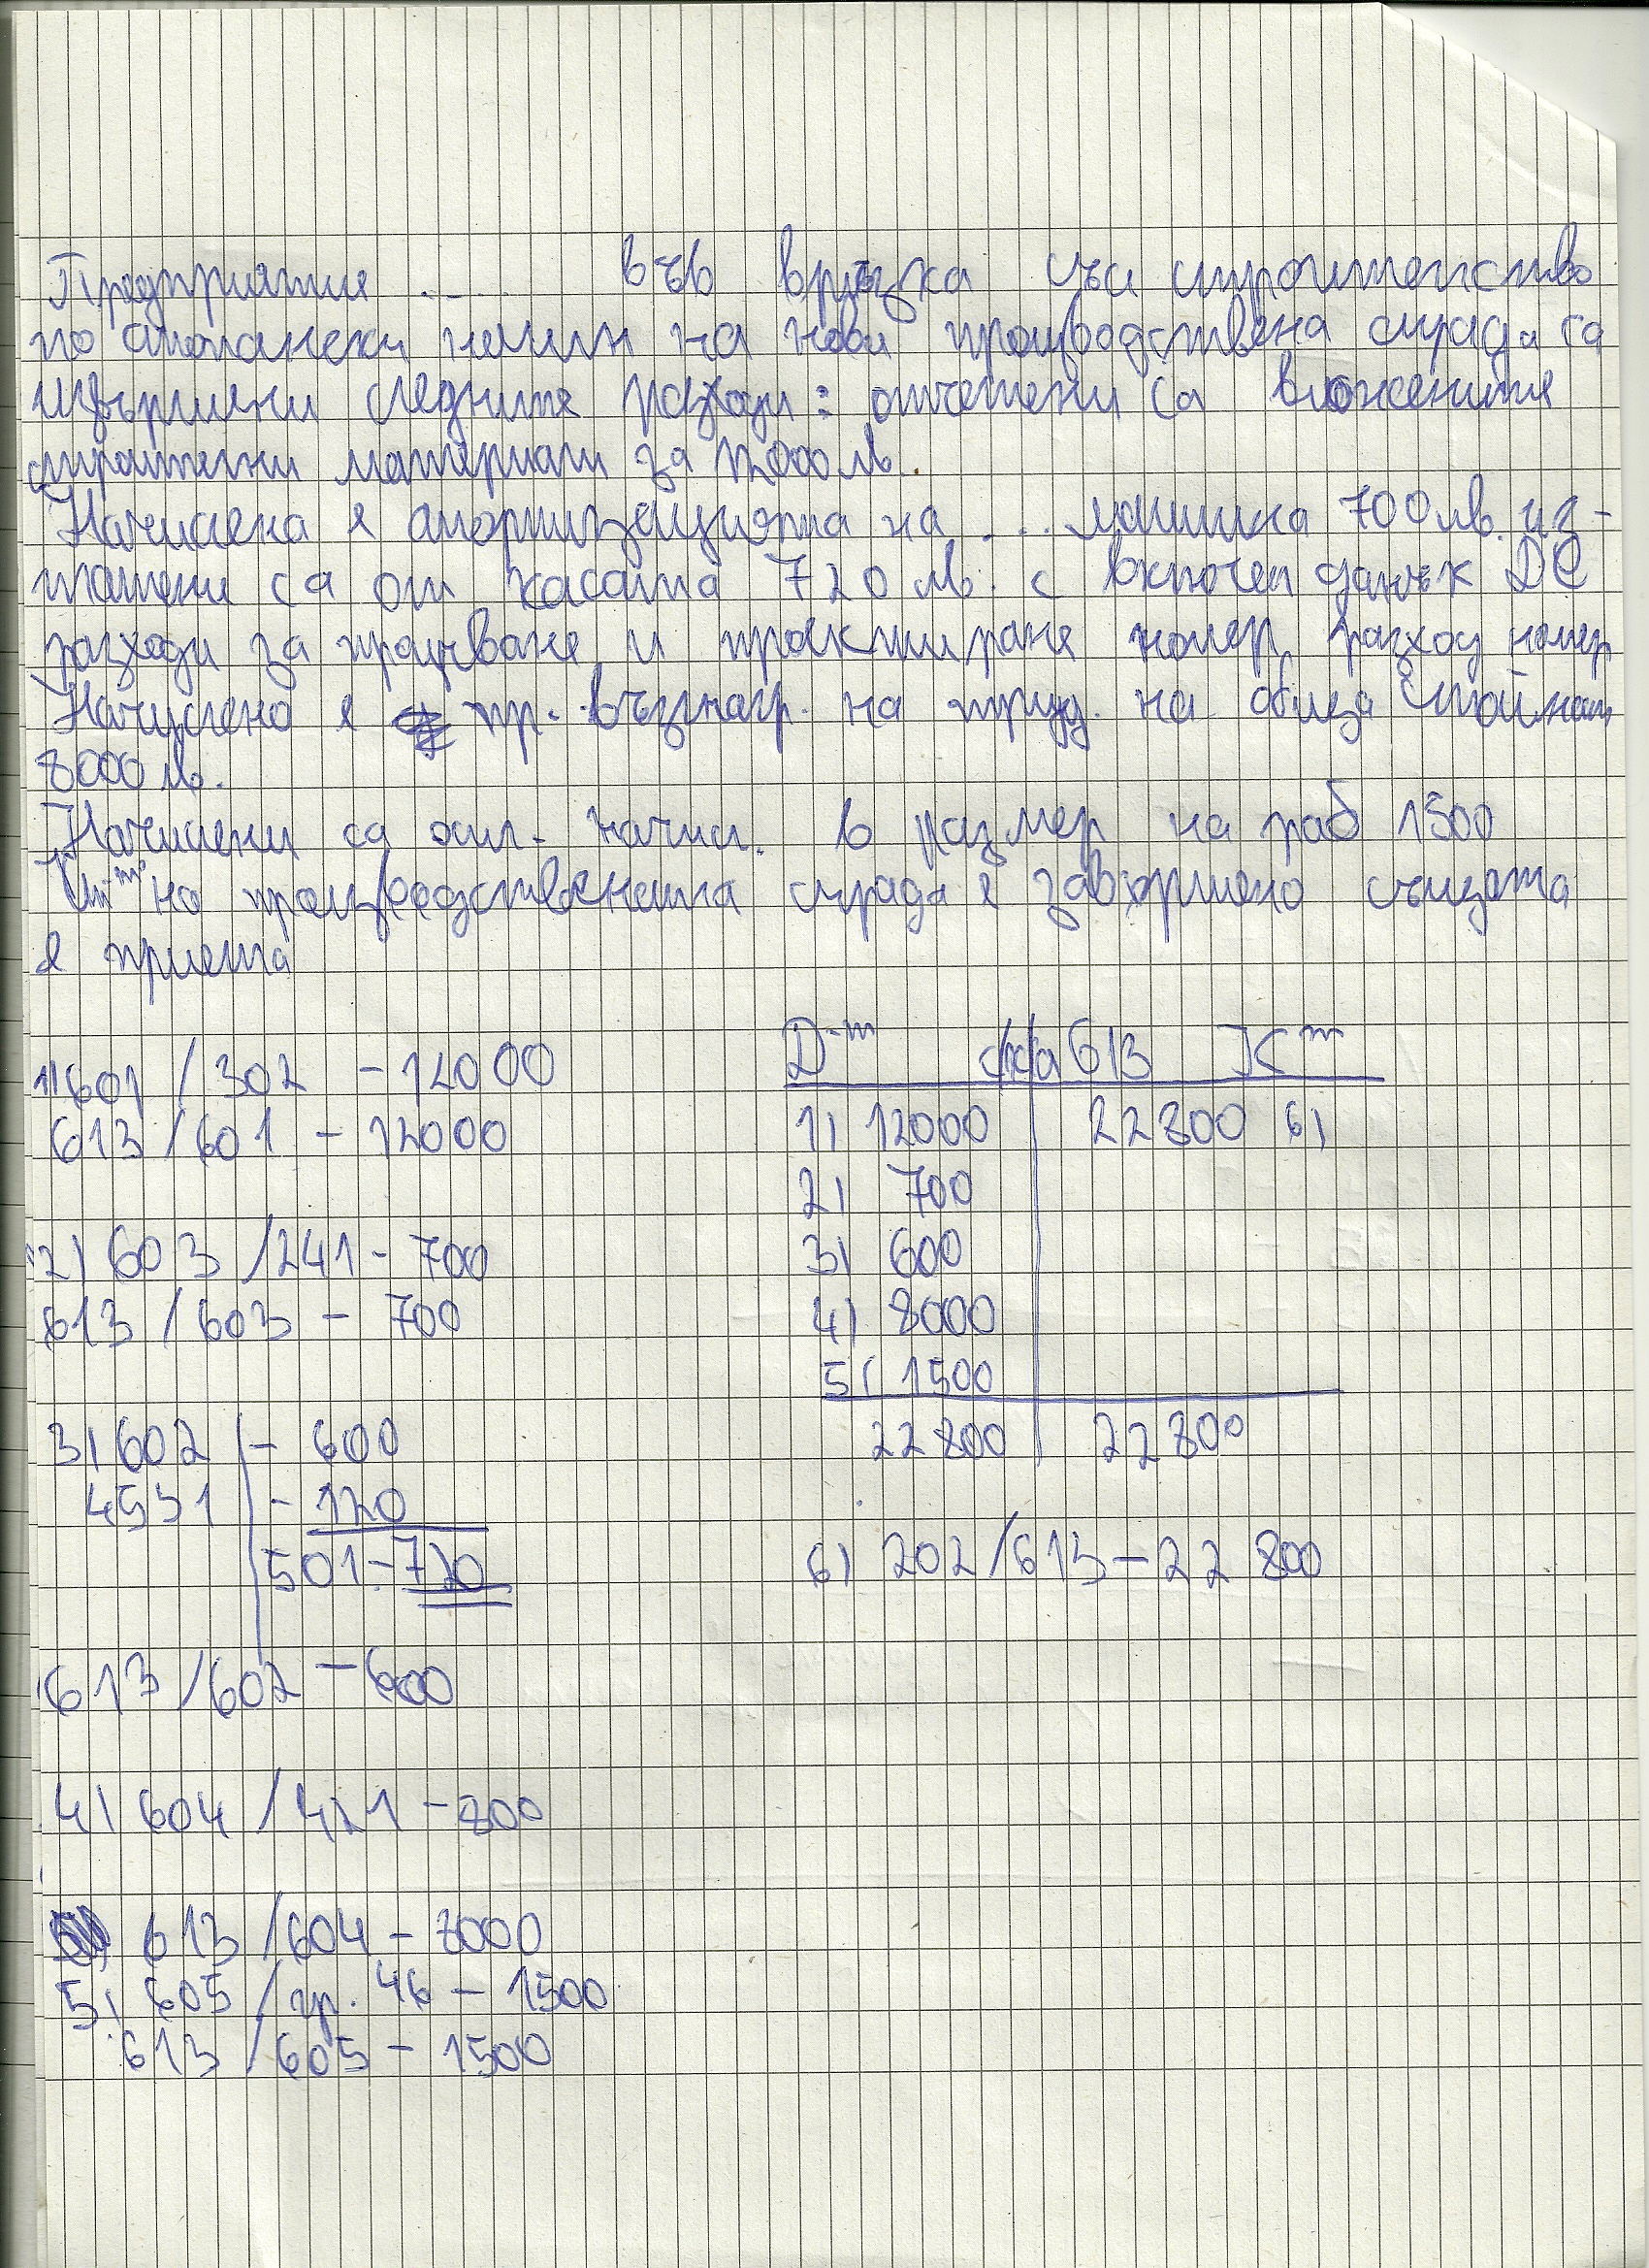 Предприятие .... във връзка със строителство
по стопански начин на нова производствена сграда са
извършени следните разходи: отчетени са вложените
строителни материали за 12000 лв.
Начислена е амортизацията на .... машина 700 лв. из-
платени са от касата 720 лв. с включен данък ДС
разходи за проучване и проектиране номер разход номер
Начислено е тр. възнагр. на труд. на обща стойност
8000 лв.
Начислени са осиг. начисл. в размер на раб 1500
на производствената сграда е завършено същата
е приета
1) 601 / 302 - 12000
613 / 601 - 12000
2) 603 / 241 - 700
613 / 603 - 700
3) 602 / - 600
4531 - 120
501 - 720
613 / 602 - 600
4) 604 / 421 - 800
613 / 604 - 8000
5) 605 / гр. 46 - 1500
613 / 605 - 1500
Д-т с/ка 613 К-т
1) 12000 22800 6)
2) 700
3) 600
4) 8000
5) 1500
22800 22800
6) 202 / 613 - 22 800